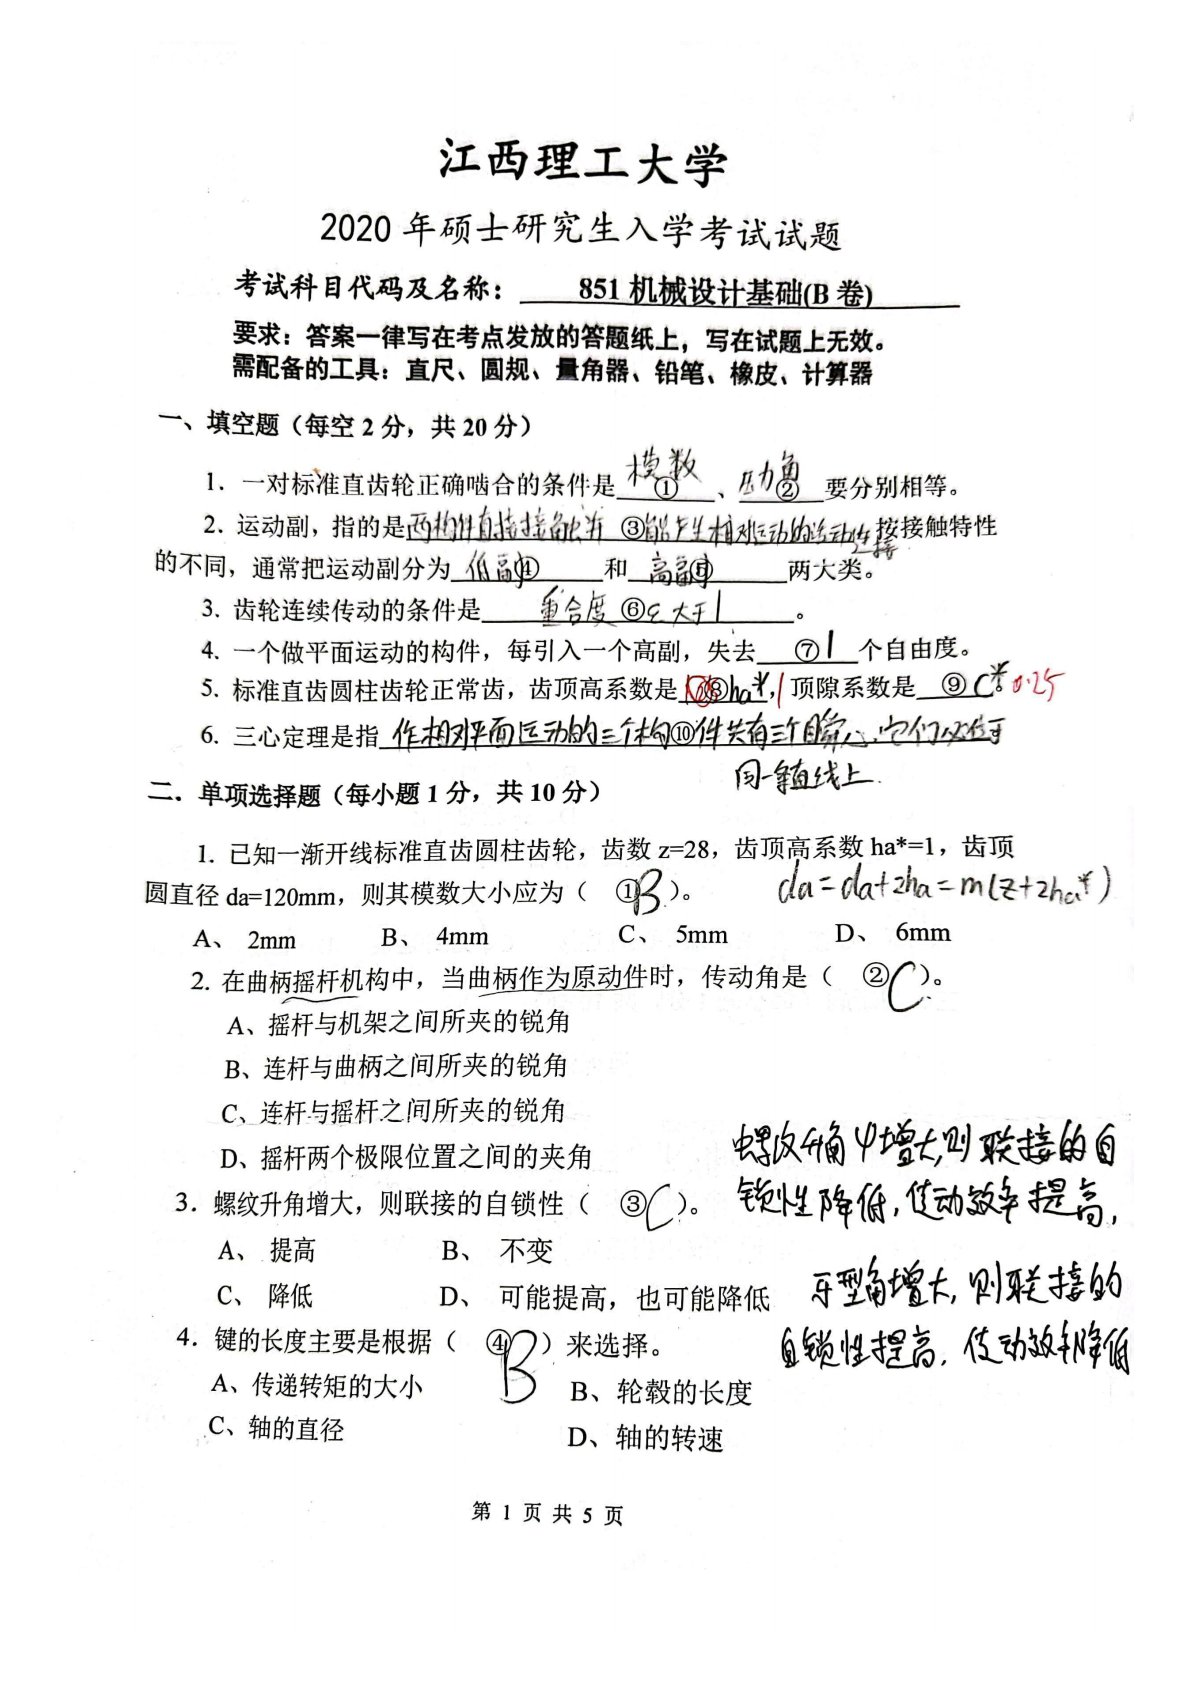 江西理工大学
2020 年硕士研究生入学考试试题
考试科目代码及名称： 851 机械设计基础(B 卷)
要求：答案一律写在考点发放的答题纸上，写在试题上无效。
需配备的工具：直尺、圆规、量角器、铅笔、橡皮、计算器
一、填空题（每空 2 分，共 20 分）
1．一对标准直齿轮正确啮合的条件是 模数 ① 、压力角 ② 要分别相等。
2．运动副，指的是两构件直接接触并 ③ 能产生相对运动的活动连接按接触特性
的不同，通常把运动副分为 低副 ④ 和 高副 ⑤ 两大类。
3. 齿轮连续传动的条件是 重合度 ⑥ ε 大于1 。
4. 一个做平面运动的构件，每引入一个高副，失去 ⑦ 1 个自由度。
5. 标准直齿圆柱齿轮正常齿，齿顶高系数是 ⑧ ha*，1 顶隙系数是 ⑨ C* 0.25
6. 三心定理是指 作相对平面运动的三个构 ⑩ 件共有三个瞬心，它们必位于
同一条直线上.
二．单项选择题（每小题 1 分，共 10 分）
1. 已知一渐开线标准直齿圆柱齿轮，齿数 z=28，齿顶高系数 ha*=1，齿顶
圆直径 da=120mm，则其模数大小应为（ ① B ）。 da=da+2ha=m(z+2ha*)
A、 2mm B、 4mm C、 5mm D、 6mm
2. 在曲柄摇杆机构中，当曲柄作为原动件时，传动角是（ ② C ）。
A、摇杆与机架之间所夹的锐角
B、连杆与曲柄之间所夹的锐角
C、连杆与摇杆之间所夹的锐角
D、摇杆两个极限位置之间的夹角
螺纹升角ψ增大,则联接的自
锁性降低,传动效率提高,
3．螺纹升角增大，则联接的自锁性（ ③ C ）。
A、 提高 B、 不变
C、 降低 D、 可能提高，也可能降低
牙型角增大,则联接的
自锁性提高,传动效率降低
4．键的长度主要是根据（ ④ B ）来选择。
A、传递转矩的大小 B、轮毂的长度
C、轴的直径 D、轴的转速
第 1 页 共 5 页